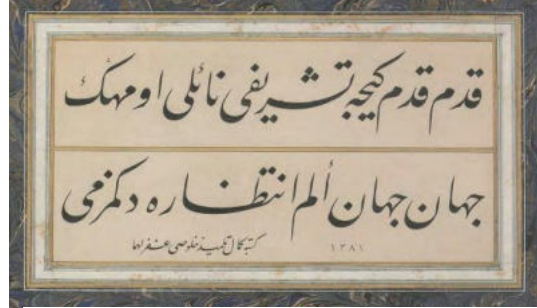 قدم قدم كیجه تشریفی نائلی او مهك
جهان جهان ألم انتظاره دكمزمی
١٣٨١ كتبه كمال تلميذ خلوصى غفر لهما